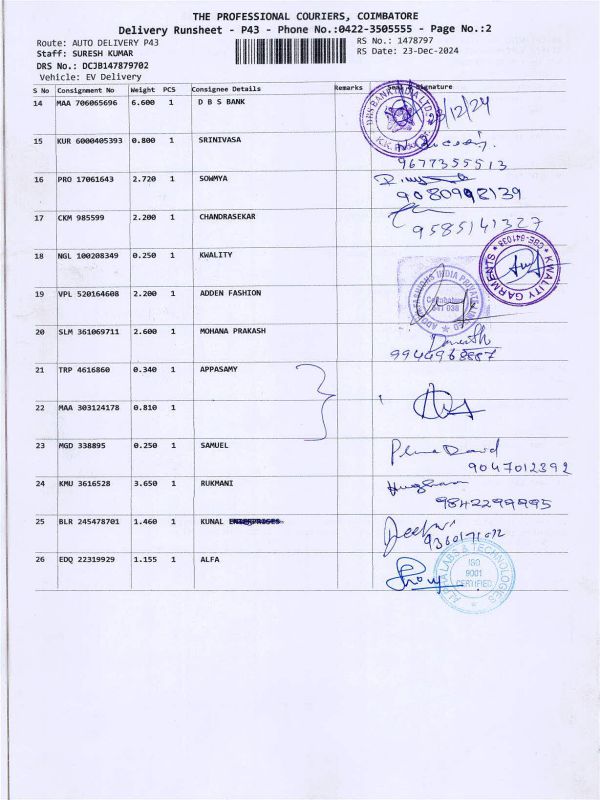 THE PROFESSIONAL COURIERS, COIMBATORE
Delivery Runsheet - P43 - Phone No.:0422-3505555 - Page No.:2
Route: AUTO DELIVERY P43 RS No.: 1478797
Staff: SURESH KUMAR RS Date: 23-Dec-2024
DRS No.: DCJB147879702
Vehicle: EV Delivery
S No Consignment No Weight PCS Consignee Details Remarks Seal & Signature
14 MAA 706065696 6.600 1 D B S BANK
15 KUR 6000405393 0.800 1 SRINIVASA
9677355513
16 PRO 17061643 2.720 1 SOWMYA
9080998139
17 CKM 985599 2.200 1 CHANDRASEKAR
9585141327
18 NGL 100208349 0.250 1 KWALITY
KWALITY GARMENTS * CBE-641038 *
19 VPL 520164608 2.200 1 ADDEN FASHION
Coimbatore
641 038
20 SLM 361069711 2.600 1 MOHANA PRAKASH
9944968887
21 TRP 4616860 0.340 1 APPASAMY
22 MAA 303124178 0.810 1
23 MGD 338895 0.250 1 SAMUEL
David
9047012392
24 KMU 3616528 3.650 1 RUKMANI
9842299995
25 BLR 245478701 1.460 1 KUNAL ENTERPRISES
26 EDQ 22319929 1.155 1 ALFA
ALFA LABS & TECHNOLOGIES
ISO
9001
CERTIFIED